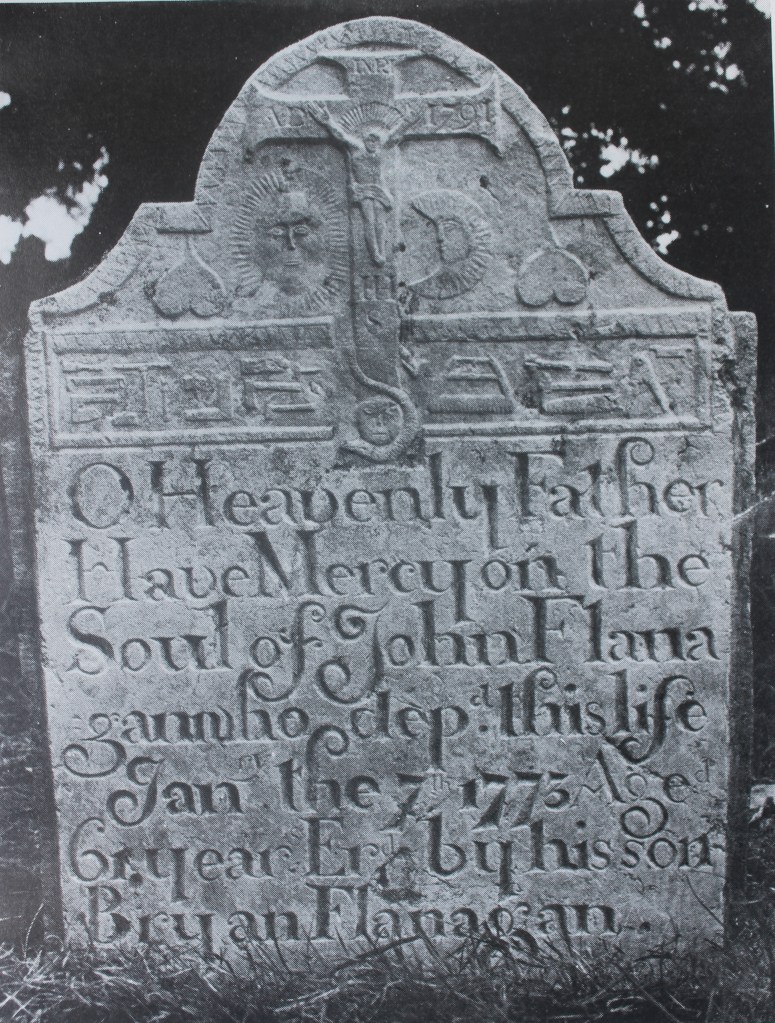 INRI
AD 1791
IHS
O Heavenly Father
Have Mercy on the
Soul of John Flana
gan who dep.d this life
Jan.ry the 7th 1773 Aged
61 year.s Er.d by his son
Bryan Flanagan.